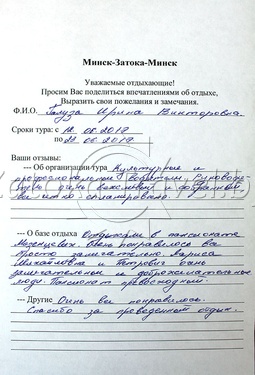 Минск-Затока-Минск
Уважаемые отдыхающие!
Просим Вас поделиться впечатлениями об отдыхе,
Выразить свои пожелания и замечания.
Ф.И.О. Ирина Викторовна
Сроки тура: с 12.08.2017
по 23.08.2017
Ваши отзывы:
--- Об организации тура Культурные и
профессиональные водители. Руководи-
очень вежливый и
спланировано.
--- О базе отдыха Отдыхали в пансионате
Очень понравилось все
просто замечательно. Лариса
Михайловна и Петрович
замечательные и доброжелательные
люди. Пансионат превосходный.
--- Другие Очень все понравилось.
Спасибо за проведенный отдых.